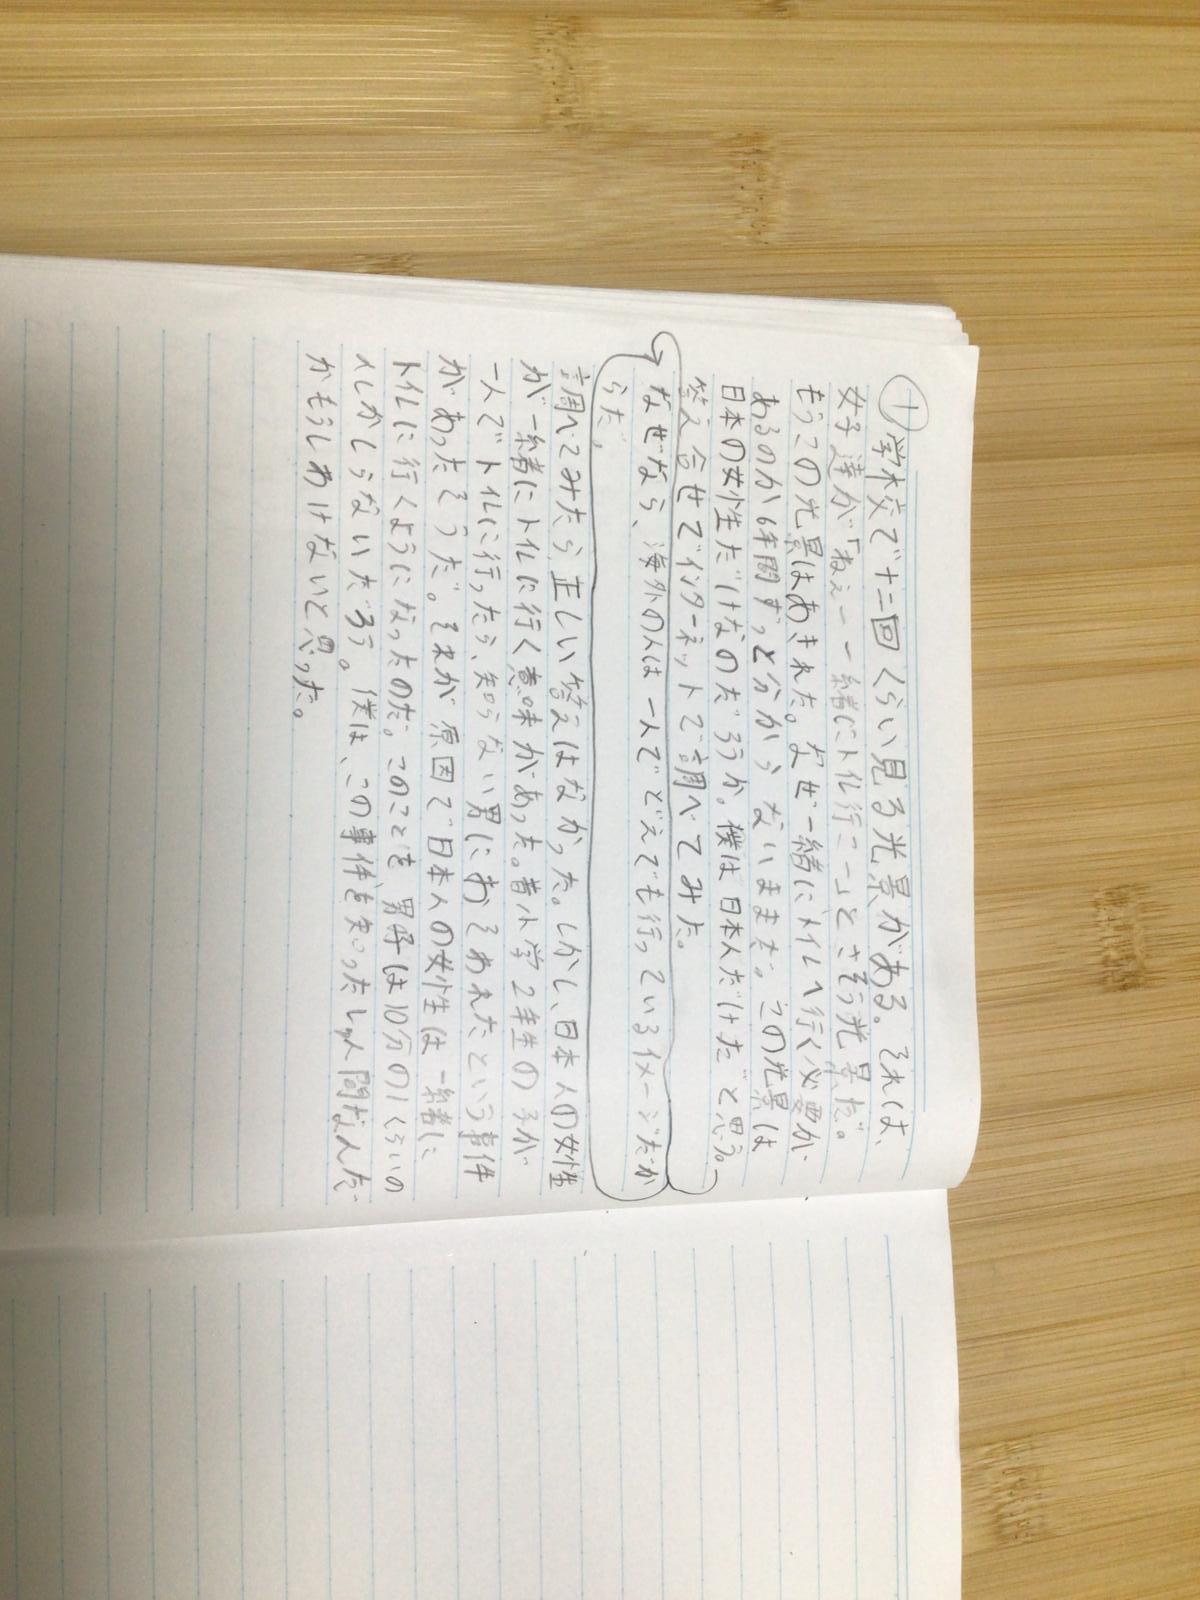 ① 学校で十二回くらい見る光景がある。それは、
女子達が「ねぇー一緒にトイレ行こー」とさそう光景だ。
もうこの光景はあきれた。なぜ一緒にトイレへ行く必要が
あるのか6年間ずっと分からないままだ。この光景は
日本の女性だけなのだろうか。僕は日本人だけだと思う。
答え合せでインターネットで調べてみた。
なぜなら、海外の人は一人でどえでも行っているイメージだか
らだ。
調べてみたら正しい答えはなかった。しかし、日本人の女性
が一緒にトイレに行く意味があった。昔小学2年生の子が
一人でトイレに行ったら、知らない男におそわれたという事件
があったそうだ。それが原因で日本人の女性は一緒に
トイレに行くようになったのだ。このことを、男子は10分の1くらいの
人しかしらないだろう。僕は、この事件を知った人間なんだ
かもうしわけないと思った。